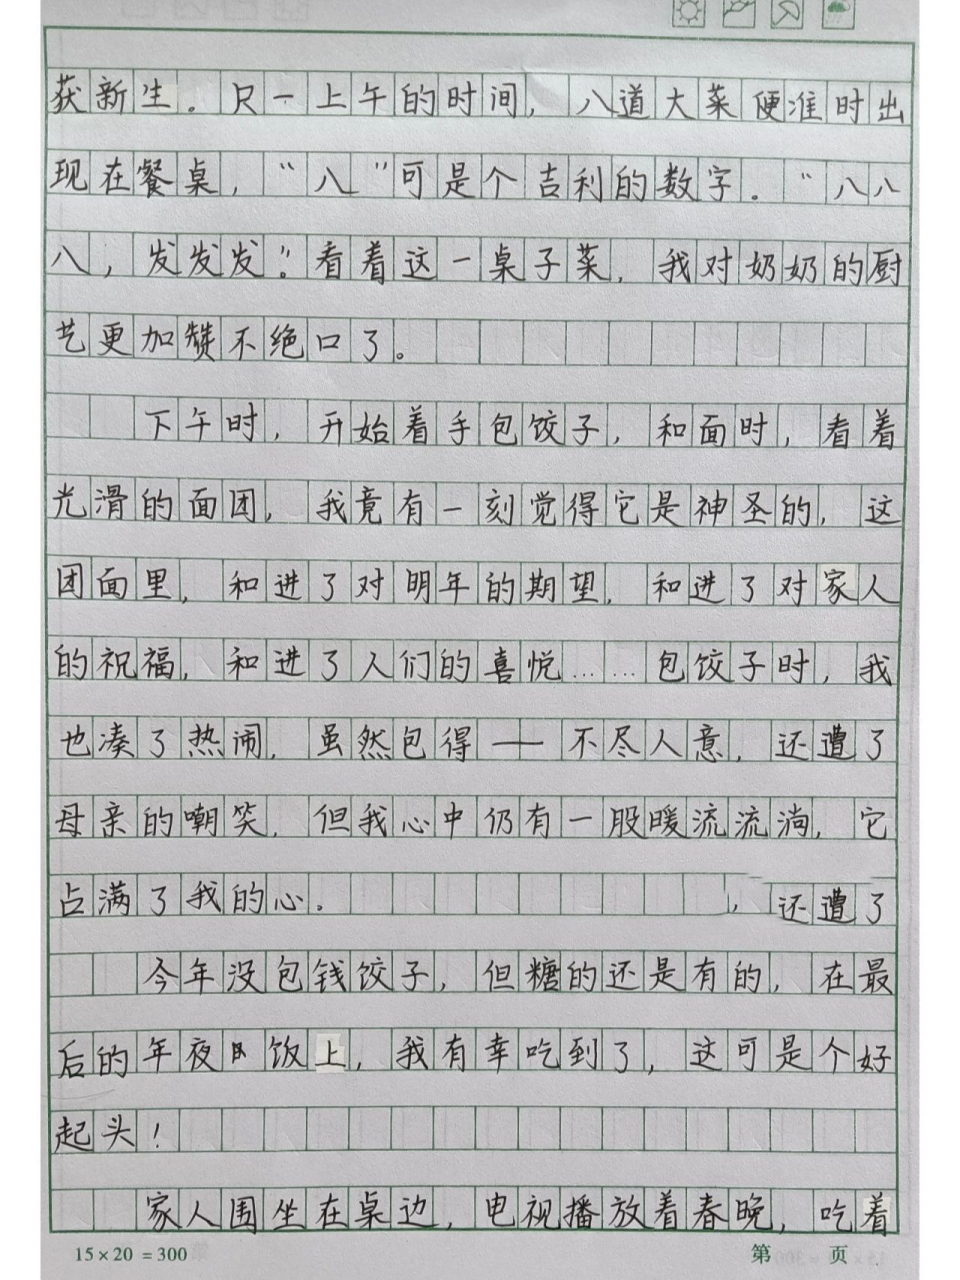 获新生。只一上午的时间，八道大菜便准时出
现在餐桌，“八”可是个吉利的数字．“八八
八，发发发”。看着这一桌子菜，我对奶奶的厨
艺更加赞不绝口了。
下午时，开始着手包饺子，和面时，看着
光滑的面团，我竟有一刻觉得它是神圣的，这
团面里，和进了对明年的期望，和进了对家人
的祝福，和进了人们的喜悦……包饺子时，我
也凑了热闹，虽然包得——不尽人意，还遭了
母亲的嘲笑，但我心中仍有一股暖流流淌，它
占满了我的心．，还遭了
今年没包钱饺子，但糖的还是有的，在最
后的年夜饭上，我有幸吃到了，这可是个好
起头！
家人围坐在桌边，电视播放着春晚，吃着
15×20=300 第 页